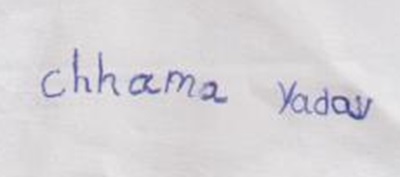 Chhama Yadav